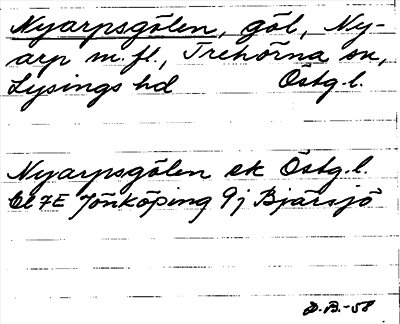 Nyarpsgölen, göl, Ny-
arp m.fl., Trehörna sn,
Lysings hd Östg.l.
Nyarpsgölen ek Östg.l.
7E Jönköping 9j Bjärsjö
D.B.-58